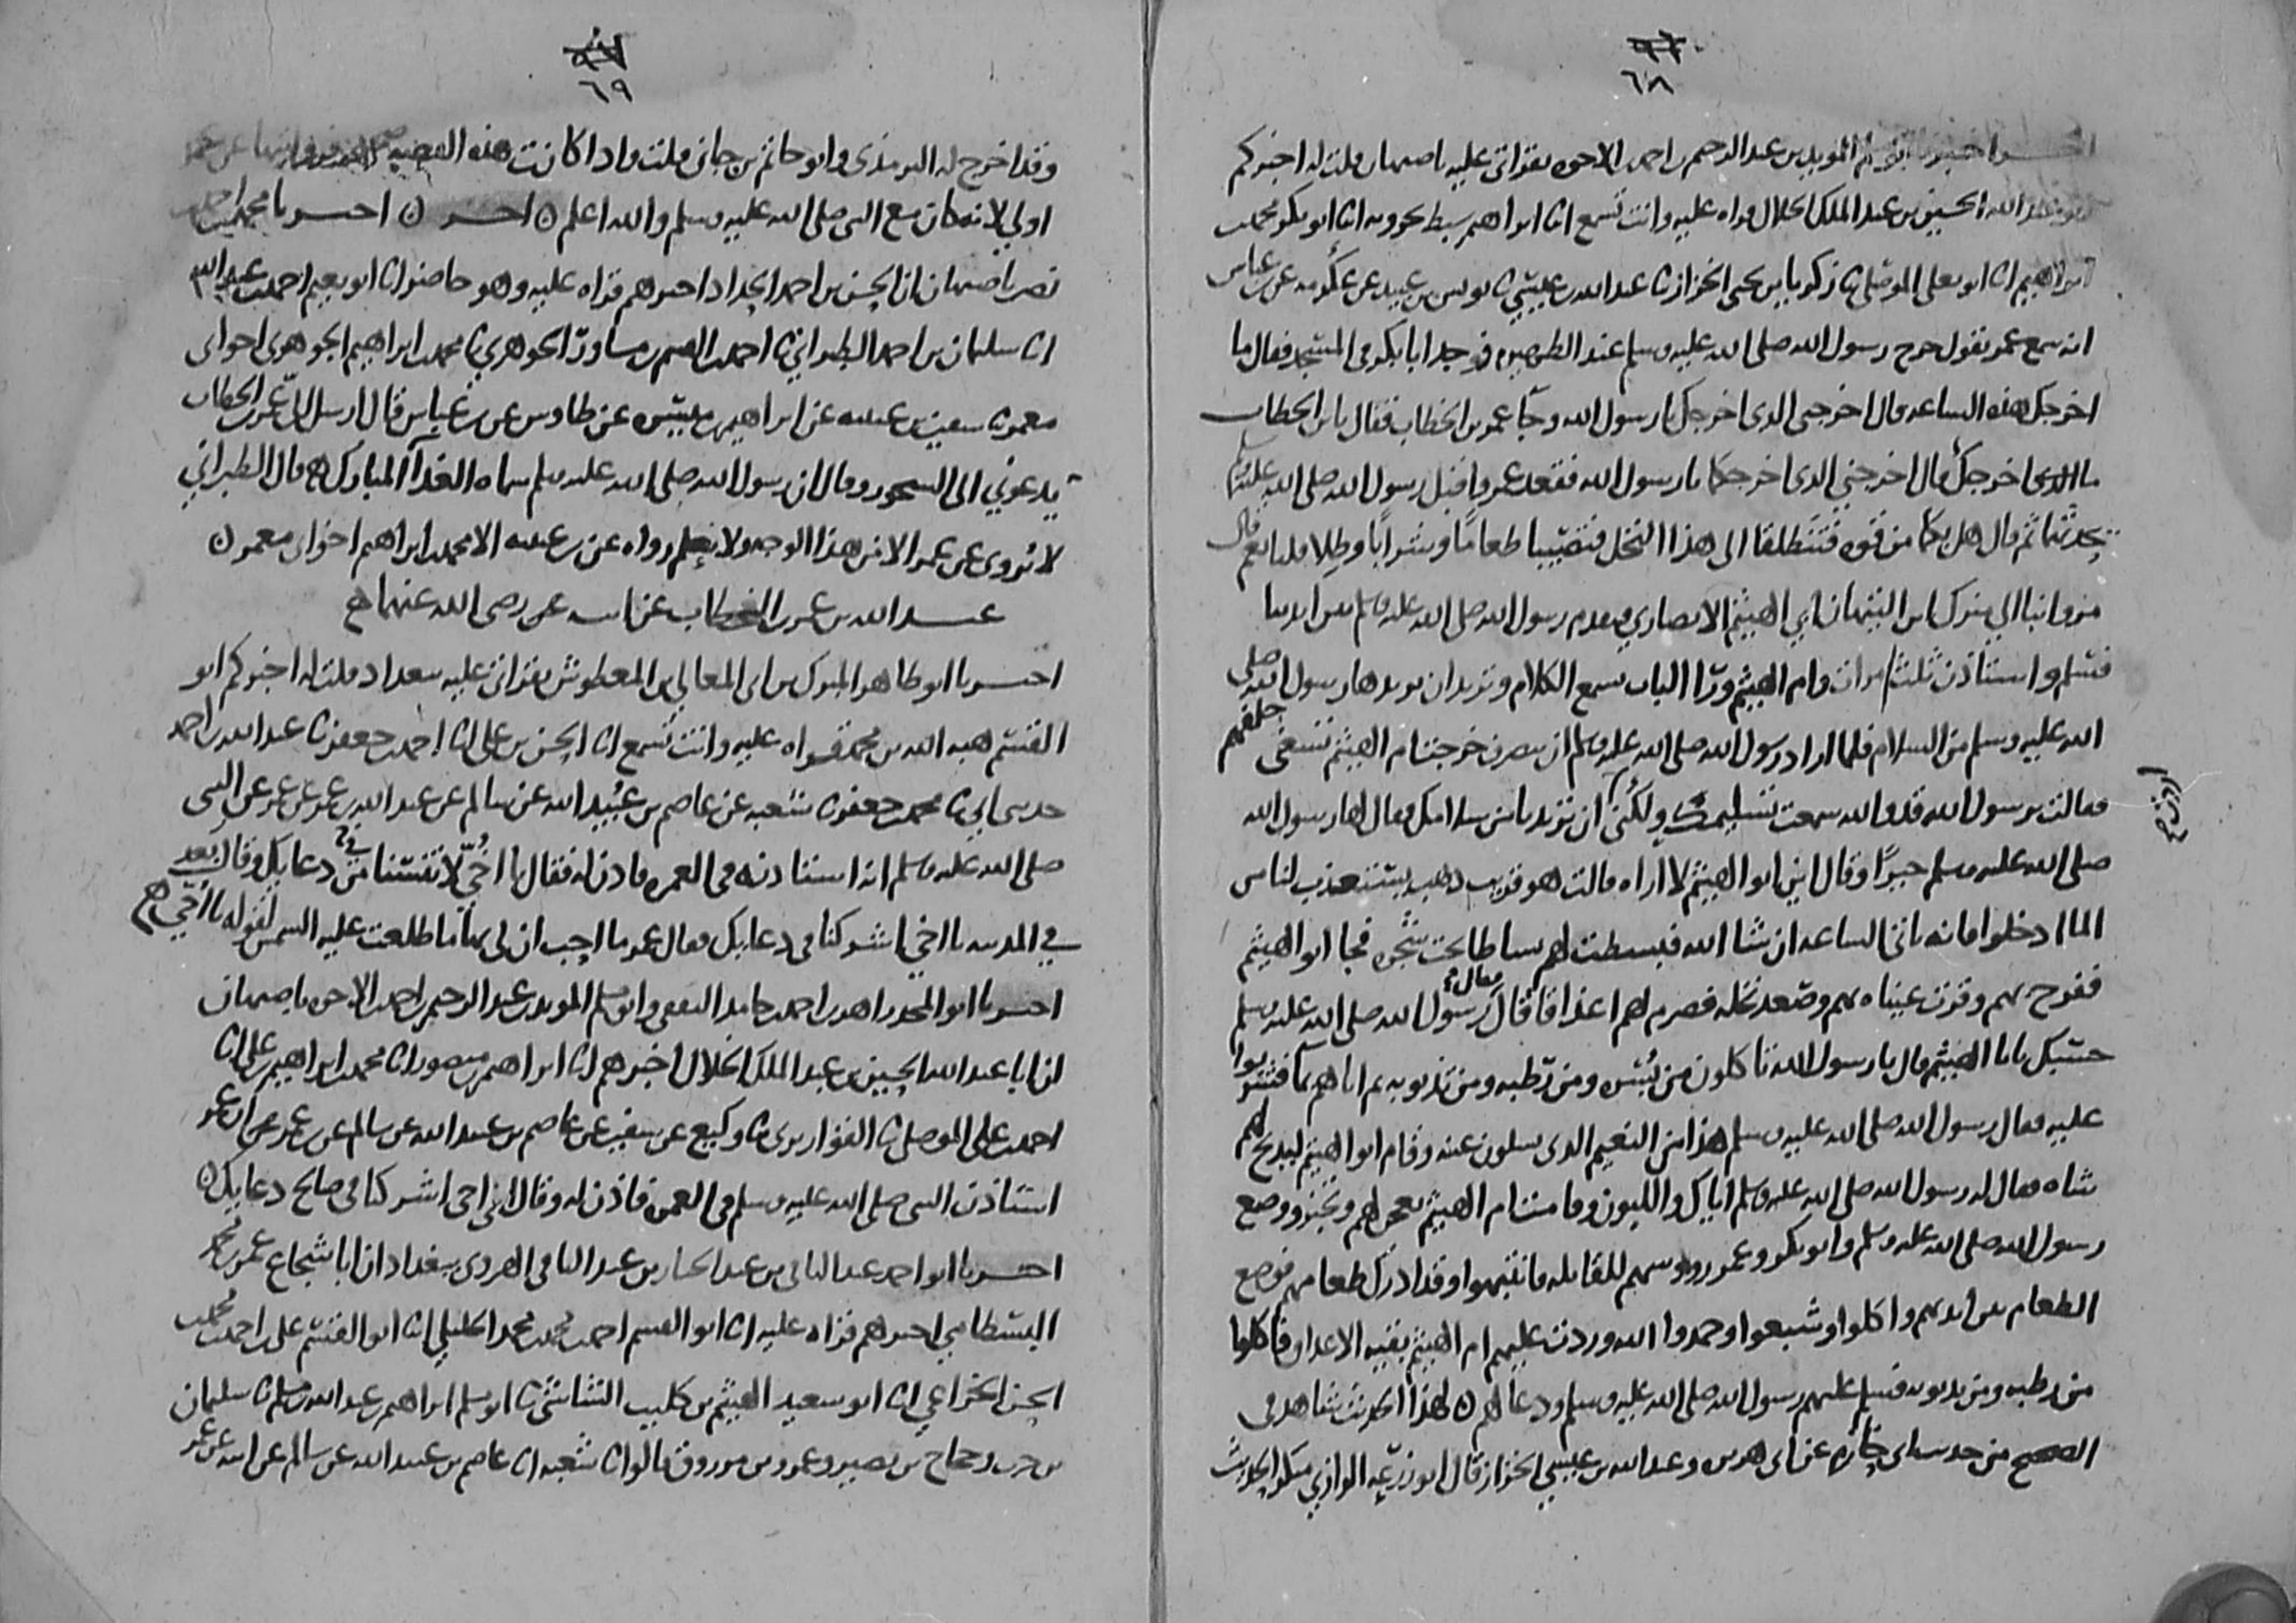 ٦٨
اخبرنا ابو مسلم المويد بن عبد الرحيم بن احمد الاخوه بقراتي عليه باصبهان قلت له اخبركم
ابو عبد الله الحسين بن عبد الملك الخلال قراه عليه وانت تسمع انا ابراهيم سبط بحرويه انا ابو بكر محمد بن
ابراهيم انا ابو يعلى الموصلي ثنا زكريا بن يحيى الخزاز ثنا عبد الله بن عيسى ثنا يونس بن عبيد عن عكرمه عن ابن عباس
انه سمع عمر يقول خرج رسول الله صلى الله عليه وسلم عند الظهيره فوجد ابا بكر في المسجد فقال ما
اخرجك هذه الساعه قال اخرجني الذي اخرجك يا رسول الله وجا عمر بن الخطاب فقال يا ابن الخطاب
ما الذي اخرجك قال اخرجني الذي اخرجكما يا رسول الله فقعد عمر واقبل رسول الله صلى الله عليه وسلم
يحدثنا ثم قال هل بكما من قوه فتنطلقا الى هذا النخل فتصيبا طعاما وشرابا وظلا قلنا نعم قال
مروا بنا الى منزل ابن التيهان ابي الهيثم الانصاري فتقدم رسول الله صلى الله عليه وسلم بين ايدينا
فسلم واستاذن ثلث مرات وام الهيثم ورا الباب تسمع الكلام وتريد ان يزيدها رسول الله صلى
الله عليه وسلم من السلام فلما اراد رسول الله صلى الله عليه وسلم ان ينصرف خرجت ام الهيثم تسعى خلفهم
فقالت يرسول الله قد والله سمعت تسليمك ولكن اردت ان تزيدنا من سلامك فقال لها رسول الله
صلى الله عليه وسلم خيرا وقال اين ابو الهيثم لا اراه قالت هو قريب ذهب يستعذب لنا من
الما ادخلوا فانه ياتي الساعه ان شا الله فبسطت لهم بساطا تحت شجره فجا ابو الهيثم
ففرح بهم وقرت عيناه بهم وصعد نخله فصرم لهم اعذاقا فقال له رسول الله صلى الله عليه وسلم
حسبك يا ابا الهيثم قال يا رسول الله تاكلون من بسره ومن رطبه ومن تذنوبه ثم اتاهم بما فشربوا
عليه فقال رسول الله صلى الله عليه وسلم هذا من النعيم الذي تسلون عنه وقام ابو الهيثم ليذبح لهم
شاه فقال له رسول الله صلى الله عليه وسلم اياك واللبون وقامت ام الهيثم تعجن لهم وتخبز ووضع
رسول الله صلى الله عليه وسلم وابو بكر وعمر رووسهم للقايله فانتبهوا وقد ادرك طعامهم فوضع
الطعام بين ايديهم واكلوا وشبعوا وحمدوا الله وردت عليهم ام الهيثم بقيه الاعذاق فاكلوا
من رطبه ومن تذنوبه فسلم عليهم رسول الله صلى الله عليه وسلم ودعا لهم ٥ لهذا الحديث شاهد في
الصحيح من حديث ابي حازم عن ابي هريره وعبد الله بن عيسى الخزاز قال ابو زرعه الرازي منكر الحديث
٦٩
وقد اخرج له الترمذي وابو حاتم بن حبان قلت واذا كانت هذه القصه
اولى لانه كان مع النبي صلى الله عليه وسلم والله اعلم ٥ اخر ٥ اخبرنا محمد بن احمد بن
نصر باصبهان ان الحسن بن احمد الحداد اخبرهم قراه عليه وهو حاضر انا ابو نعيم احمد بن عبد الله
انا سليمان بن احمد الطبراني ثنا احمد بن القسم بن مساور الجوهري ثنا محمد بن ابراهيم الجوهري اخو ابي
معمر ثنا سفين بن عيينه عن ابراهيم بن ميسره عن طاوس عن ابن عباس قال ارسل الي عمر بن الخطاب
يدعوني الى السحور وقال ان رسول الله صلى الله عليه وسلم سماه الغدا المبارك قال الطبراني
لا يروى عن عمر الا من هذا الوجه ولا نعلم رواه عن ابن عيينه الا محمد بن ابراهيم اخو ابي معمر ٥
عبد الله بن عمر بن الخطاب عن ابيه عمر رضي الله عنهما
اخبرنا ابو طاهر المبرك بن ابي المعالي بن المعطوش بقراتي عليه ببغداد قلت له اخبركم ابو
القسم هبه الله بن محمد قراه عليه وانت تسمع انا الحسن بن علي انا احمد بن جعفر ثنا عبد الله بن احمد
حدثني ابي ثنا محمد بن جعفر ثنا شعبه عن عاصم بن عبيد الله عن سالم عن عبد الله بن عمر عن عمر عن النبي
صلى الله عليه وسلم انه استاذنه في العمره فاذن له فقال يا اخي لا تنسنا من دعايك وقال بعد
في المدينه يا اخي اشركنا في دعايك فقال عمر ما احب ان لي بها ما طلعت عليه الشمس لقوله يا اخي
اخبرنا ابو المجد زاهر بن احمد بن حامد الثقفي وابو مسلم المويد بن عبد الرحيم بن احمد بن الاخوه باصبهان
ان ابا عبد الله الحسين بن عبد الملك الخلال اخبرهم انا ابراهيم بن منصور انا محمد بن ابراهيم بن علي انا
احمد بن علي الموصلي ثنا القواريري ثنا وكيع عن سفين عن عاصم بن عبيد الله عن سالم عن ابن عمر عن عمر ان عمر
استاذن النبي صلى الله عليه وسلم في العمره فاذن له وقال اي اخي اشركنا في صالح دعايك ٥
اخبرنا ابو احمد عبد الباقي بن عبد الجبار بن عبد الباقي الهروي ببغداد ان ابا شجاع عمر بن محمد
البسطامي اخبرهم قراه عليه انا ابو القسم احمد بن محمد بن محمد الخليلي انا ابو القسم علي بن احمد بن محمد بن
الحسن الخزاعي انا ابو سعيد الهيثم بن كليب الشاشي ثنا ابو مسلم ابراهيم بن عبد الله بن مسلم ثنا سليمان
بن حرب وحجاج بن نصير وعمرو بن مرزوق قالوا ثنا شعبه انا عاصم بن عبيد الله عن سالم عن ابيه عن عمر